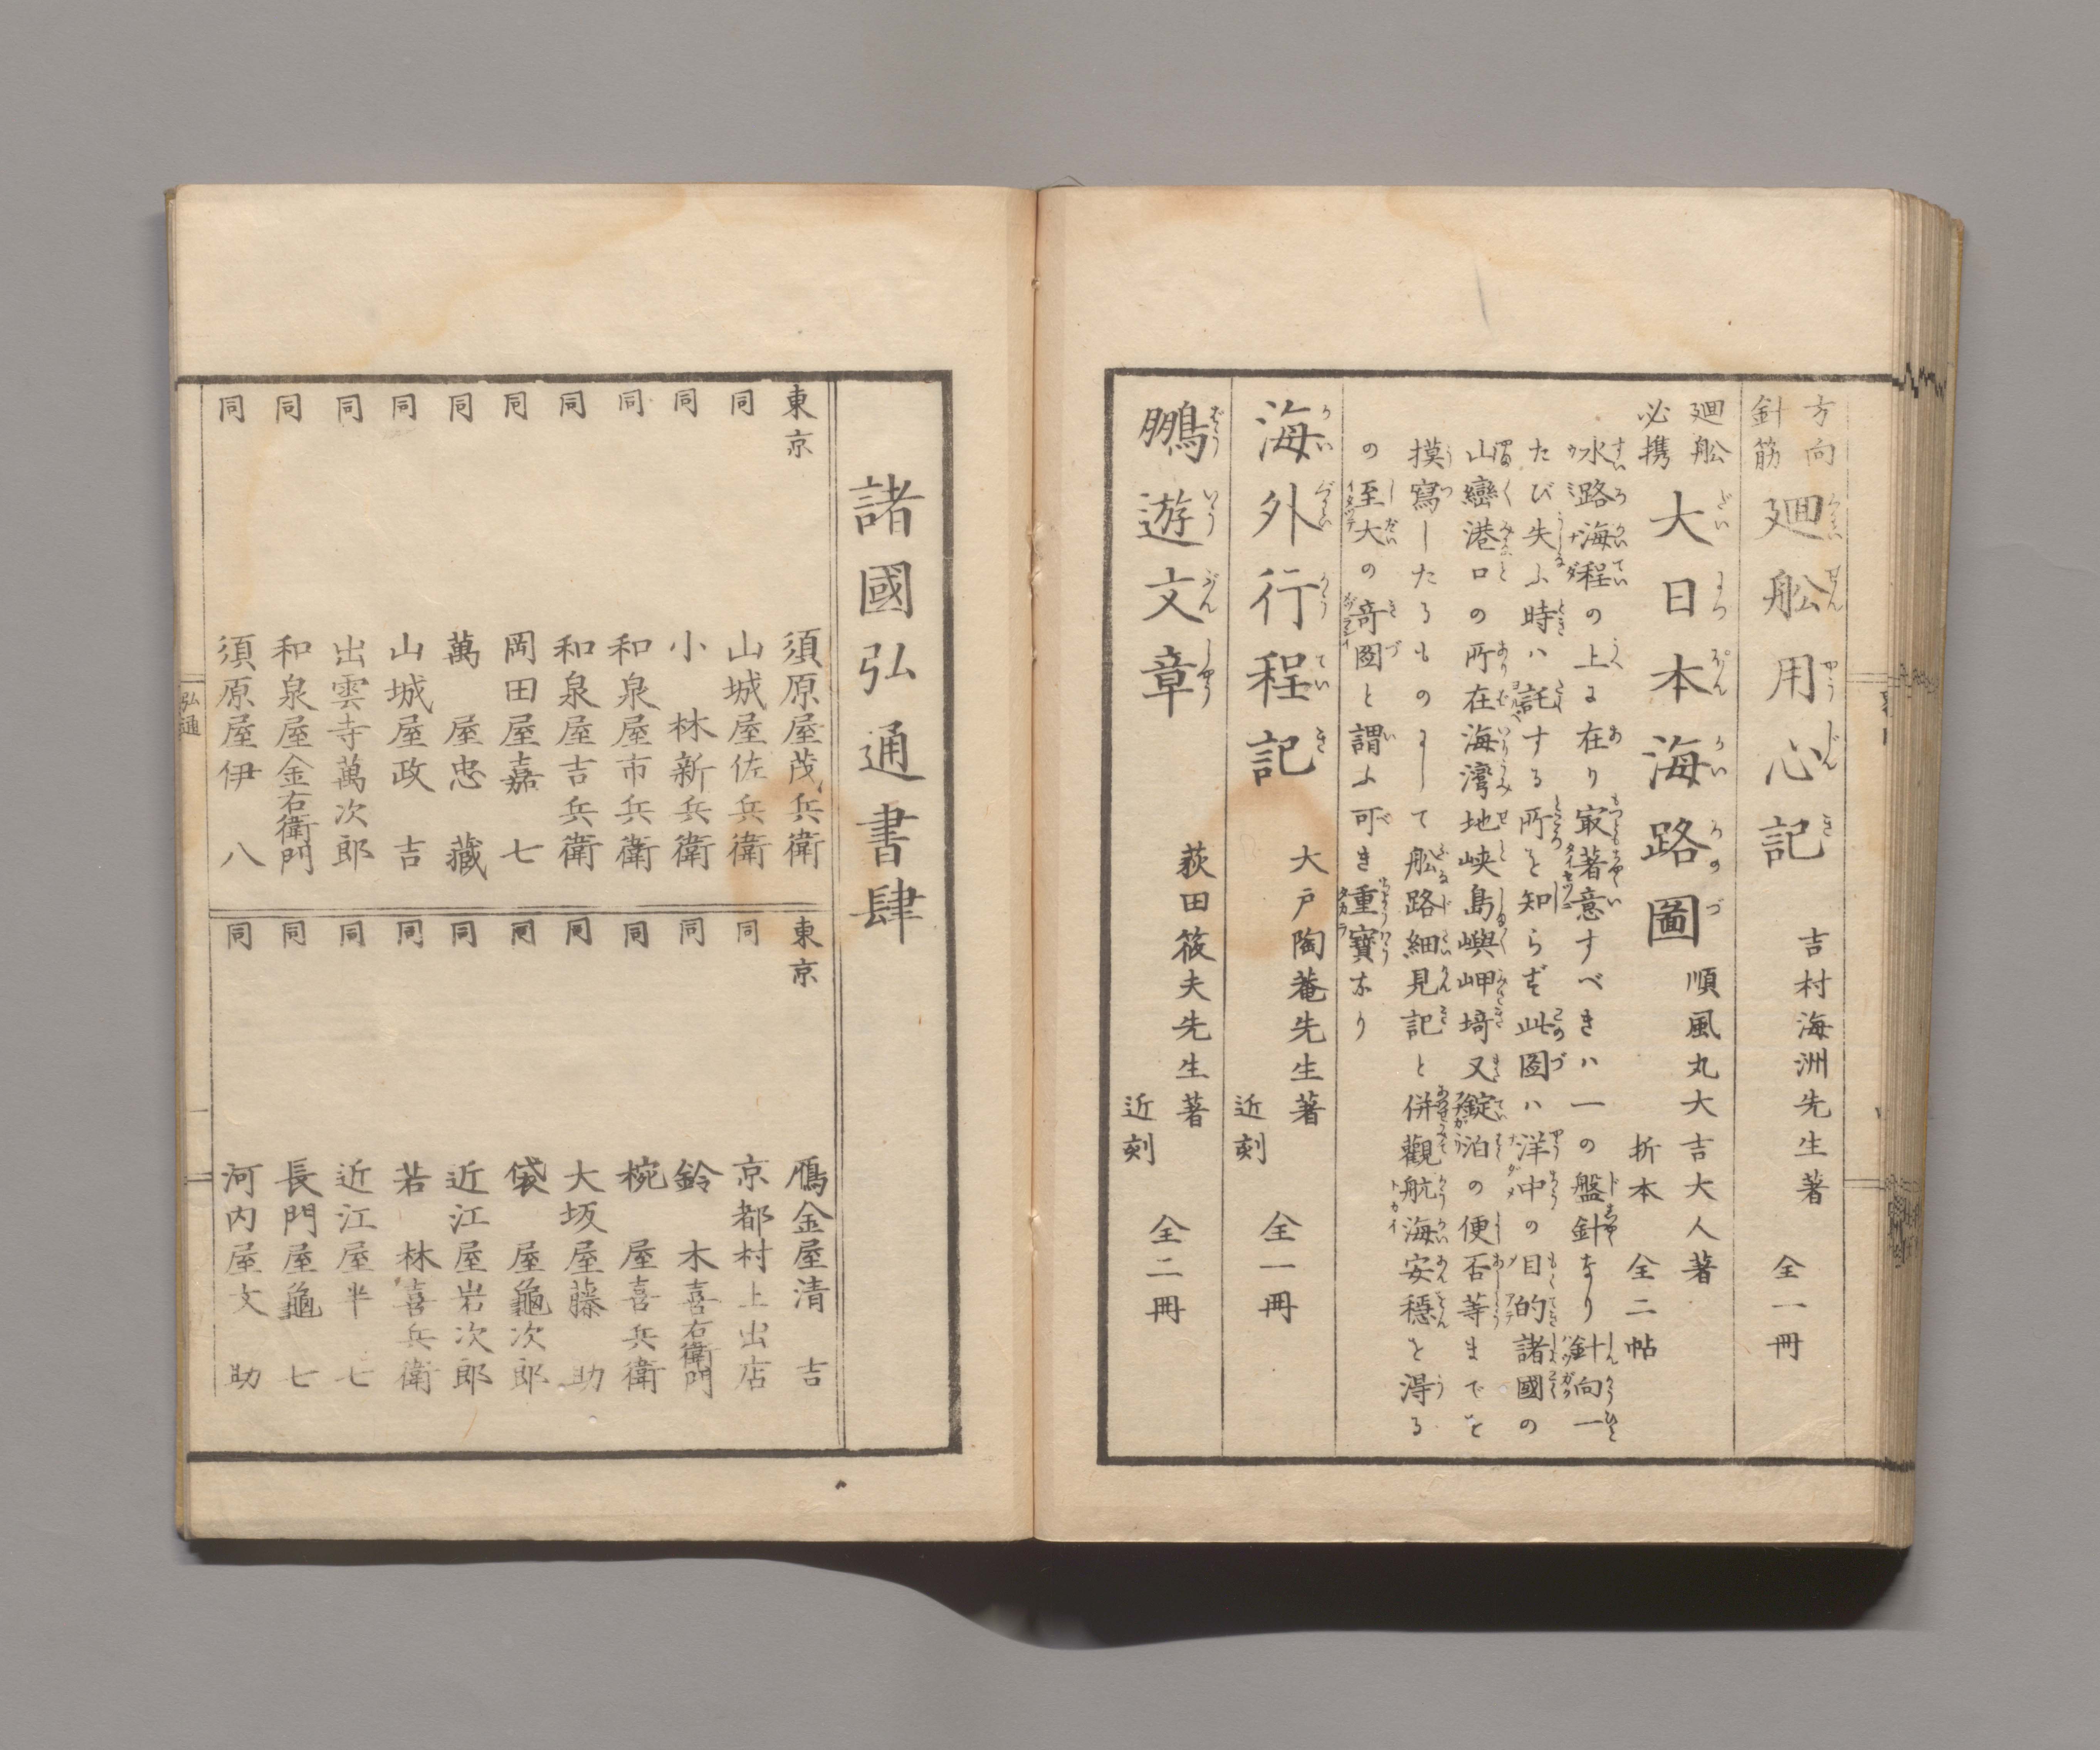 方向
針筋
廻舩用心記
吉村海洲先生著
全一冊
廻舩
必携
大日本海路圖
順風丸大吉大人著
折本 全二帖
水路海程の上に在り㝡著意すべきハ一の盤針なり針向一
たび失ふ時ハ託する所を知らず此圖ハ洋中の目的諸國の
山巒港口の所在海灣地峡島嶼岬﨑又錠泊の便否等までを
摸寫したるものにして舩路細見記と併觀航海安穏を淂る
の至大の竒圖と謂ふ可き重寳なり
海外行程記
大戸陶菴先生著
近刻
全一冊
鵬遊文章
荻田筱夫先生著
近刻
全二冊
諸國弘通書肆
東京 須原屋茂兵衛
同 山城屋佐兵衛
同 小林新兵衛
同 和泉屋市兵衛
同 和泉屋吉兵衛
同 岡田屋嘉七
同 萬屋忠藏
同 山城屋政吉
同 出雲寺萬次郎
同 和泉屋金右衛門
同 須原屋伊八
東京 鴈金屋清吉
同 京都村上出店
同 鈴木喜右衛門
同 椀屋喜兵衛
同 大坂屋藤助
同 袋屋龜次郎
同 近江屋岩次郎
同 若林喜兵衛
同 近江屋半七
同 長門屋龜七
同 河内屋文助
弘通